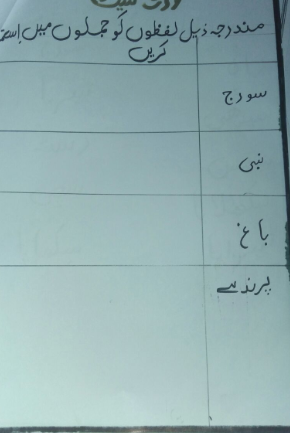 ورک شیٹ
مندرجہ ذیل لفظوں کو جملوں میں
کریں
سورج
نبی
باغ
پرندے